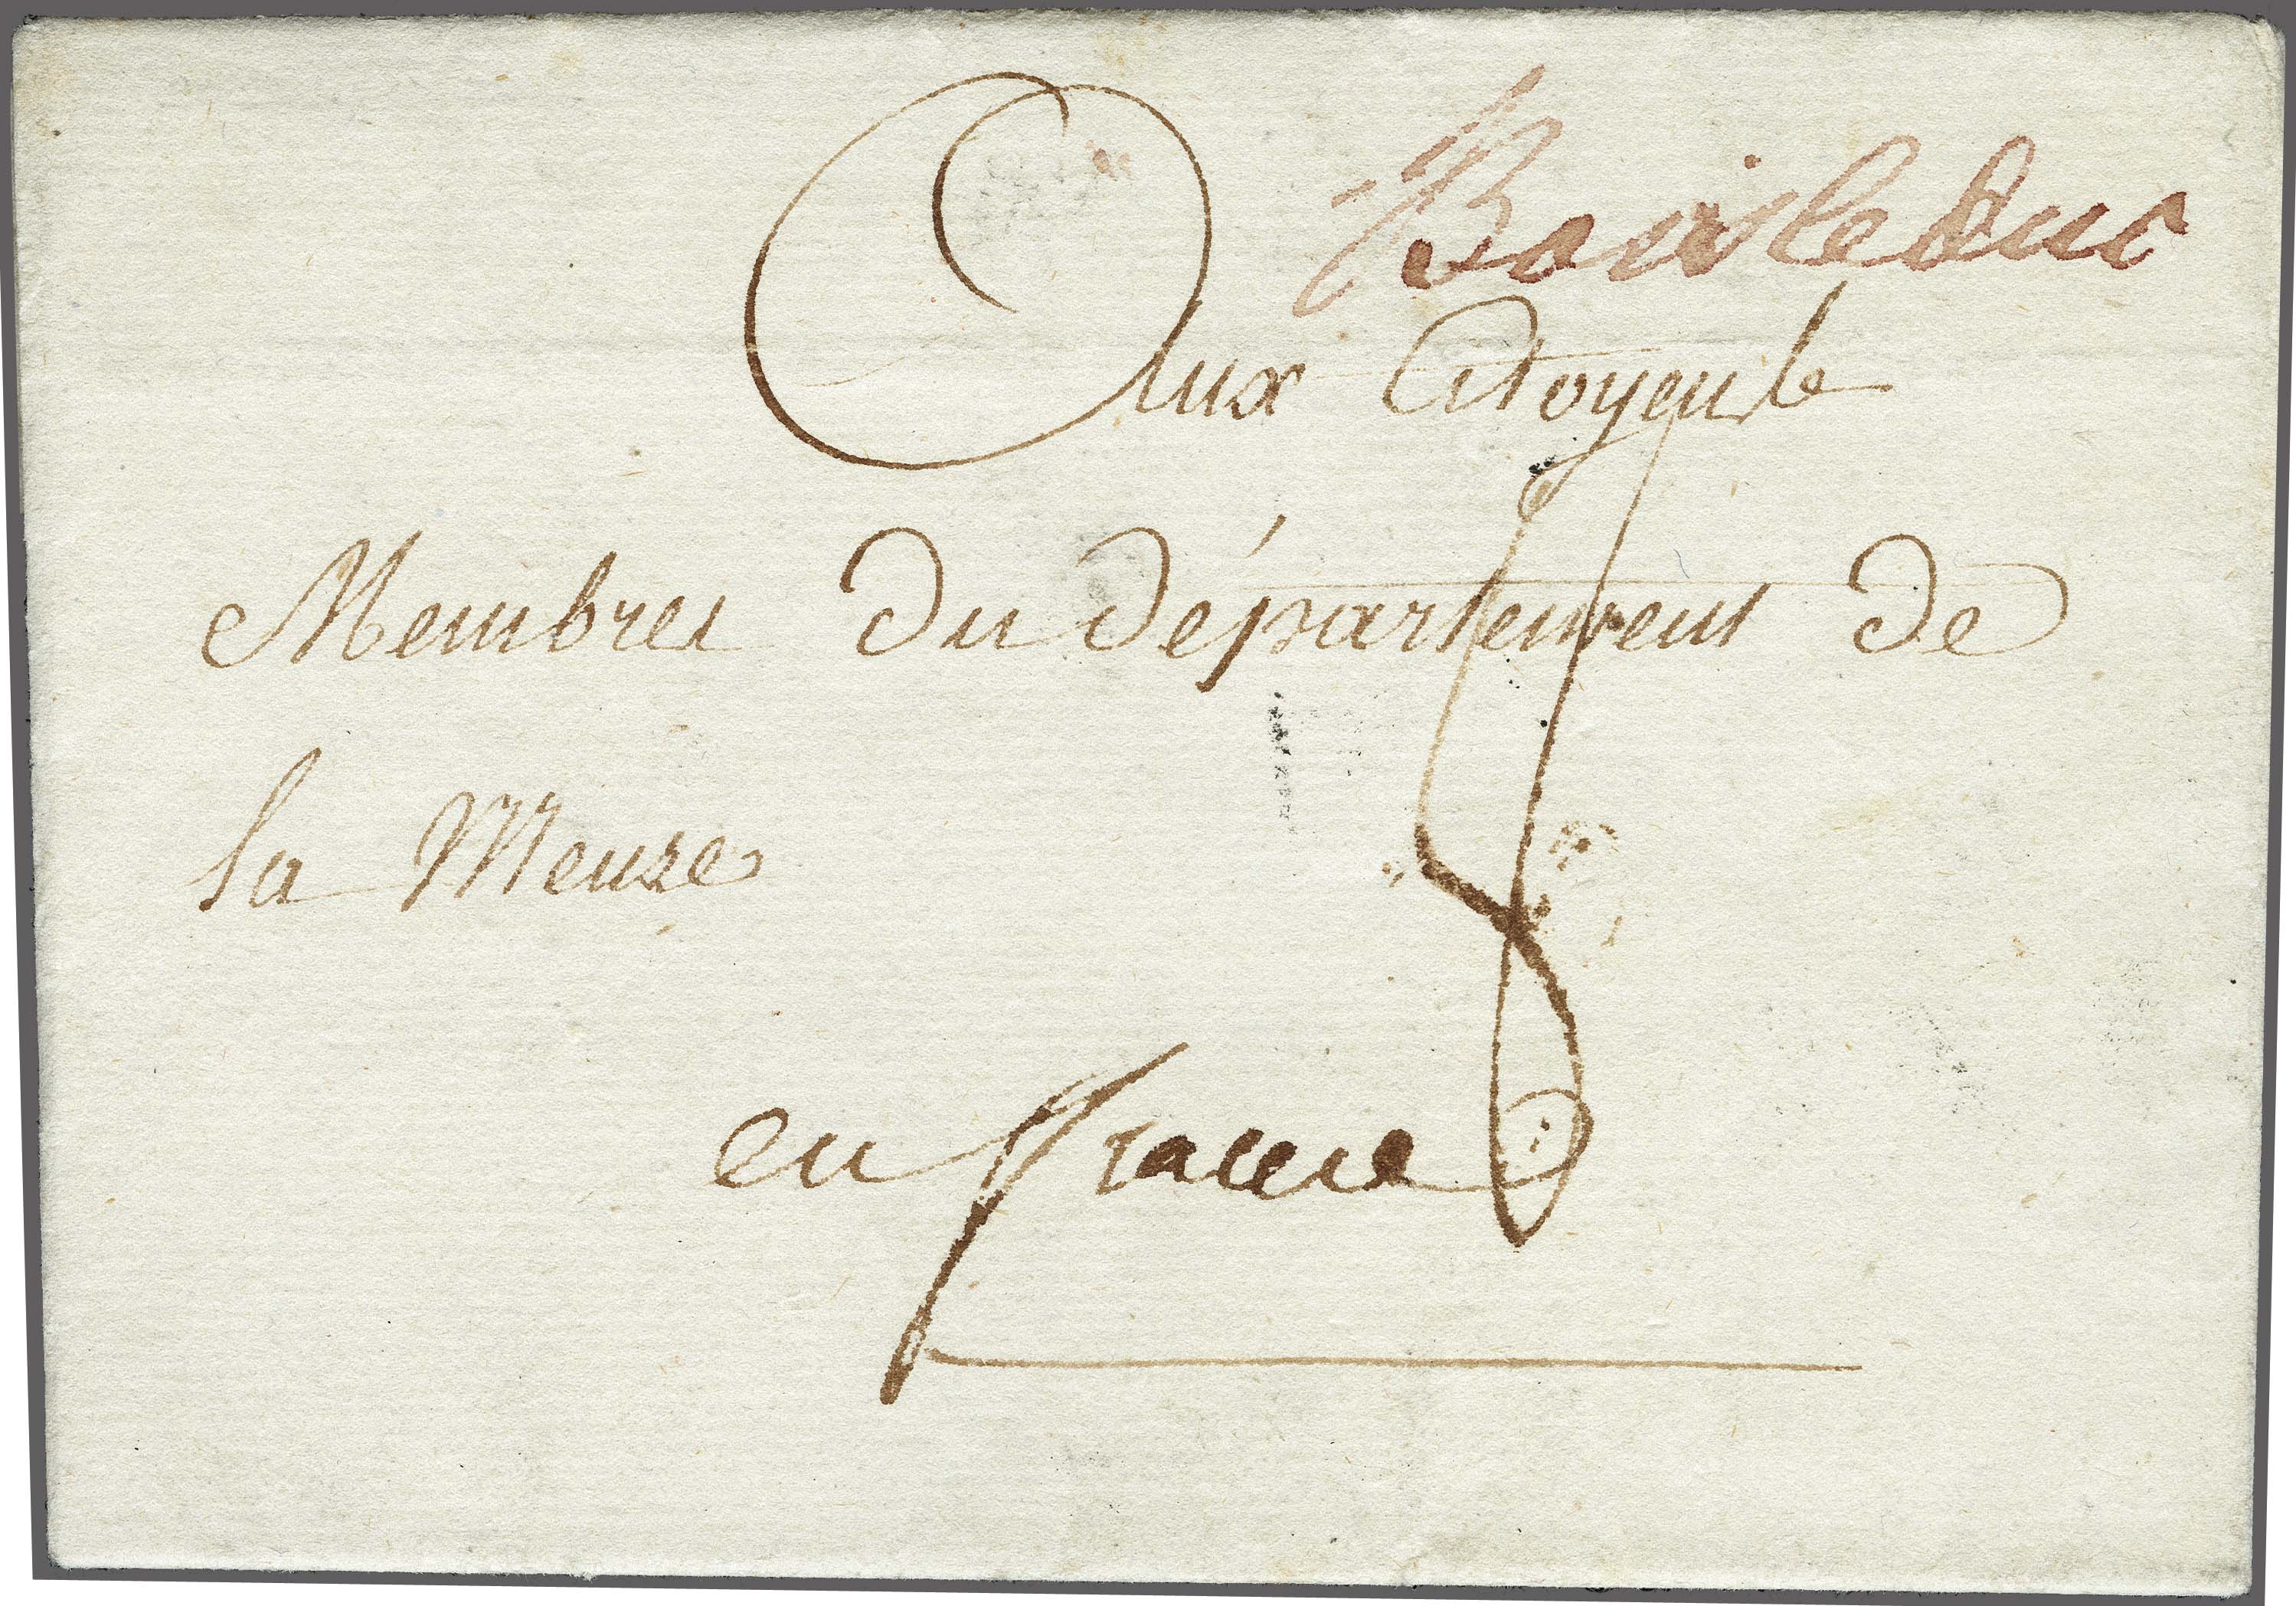 Boisleduc
Aux Citoyens
Membres du département de
la Meuse
en france